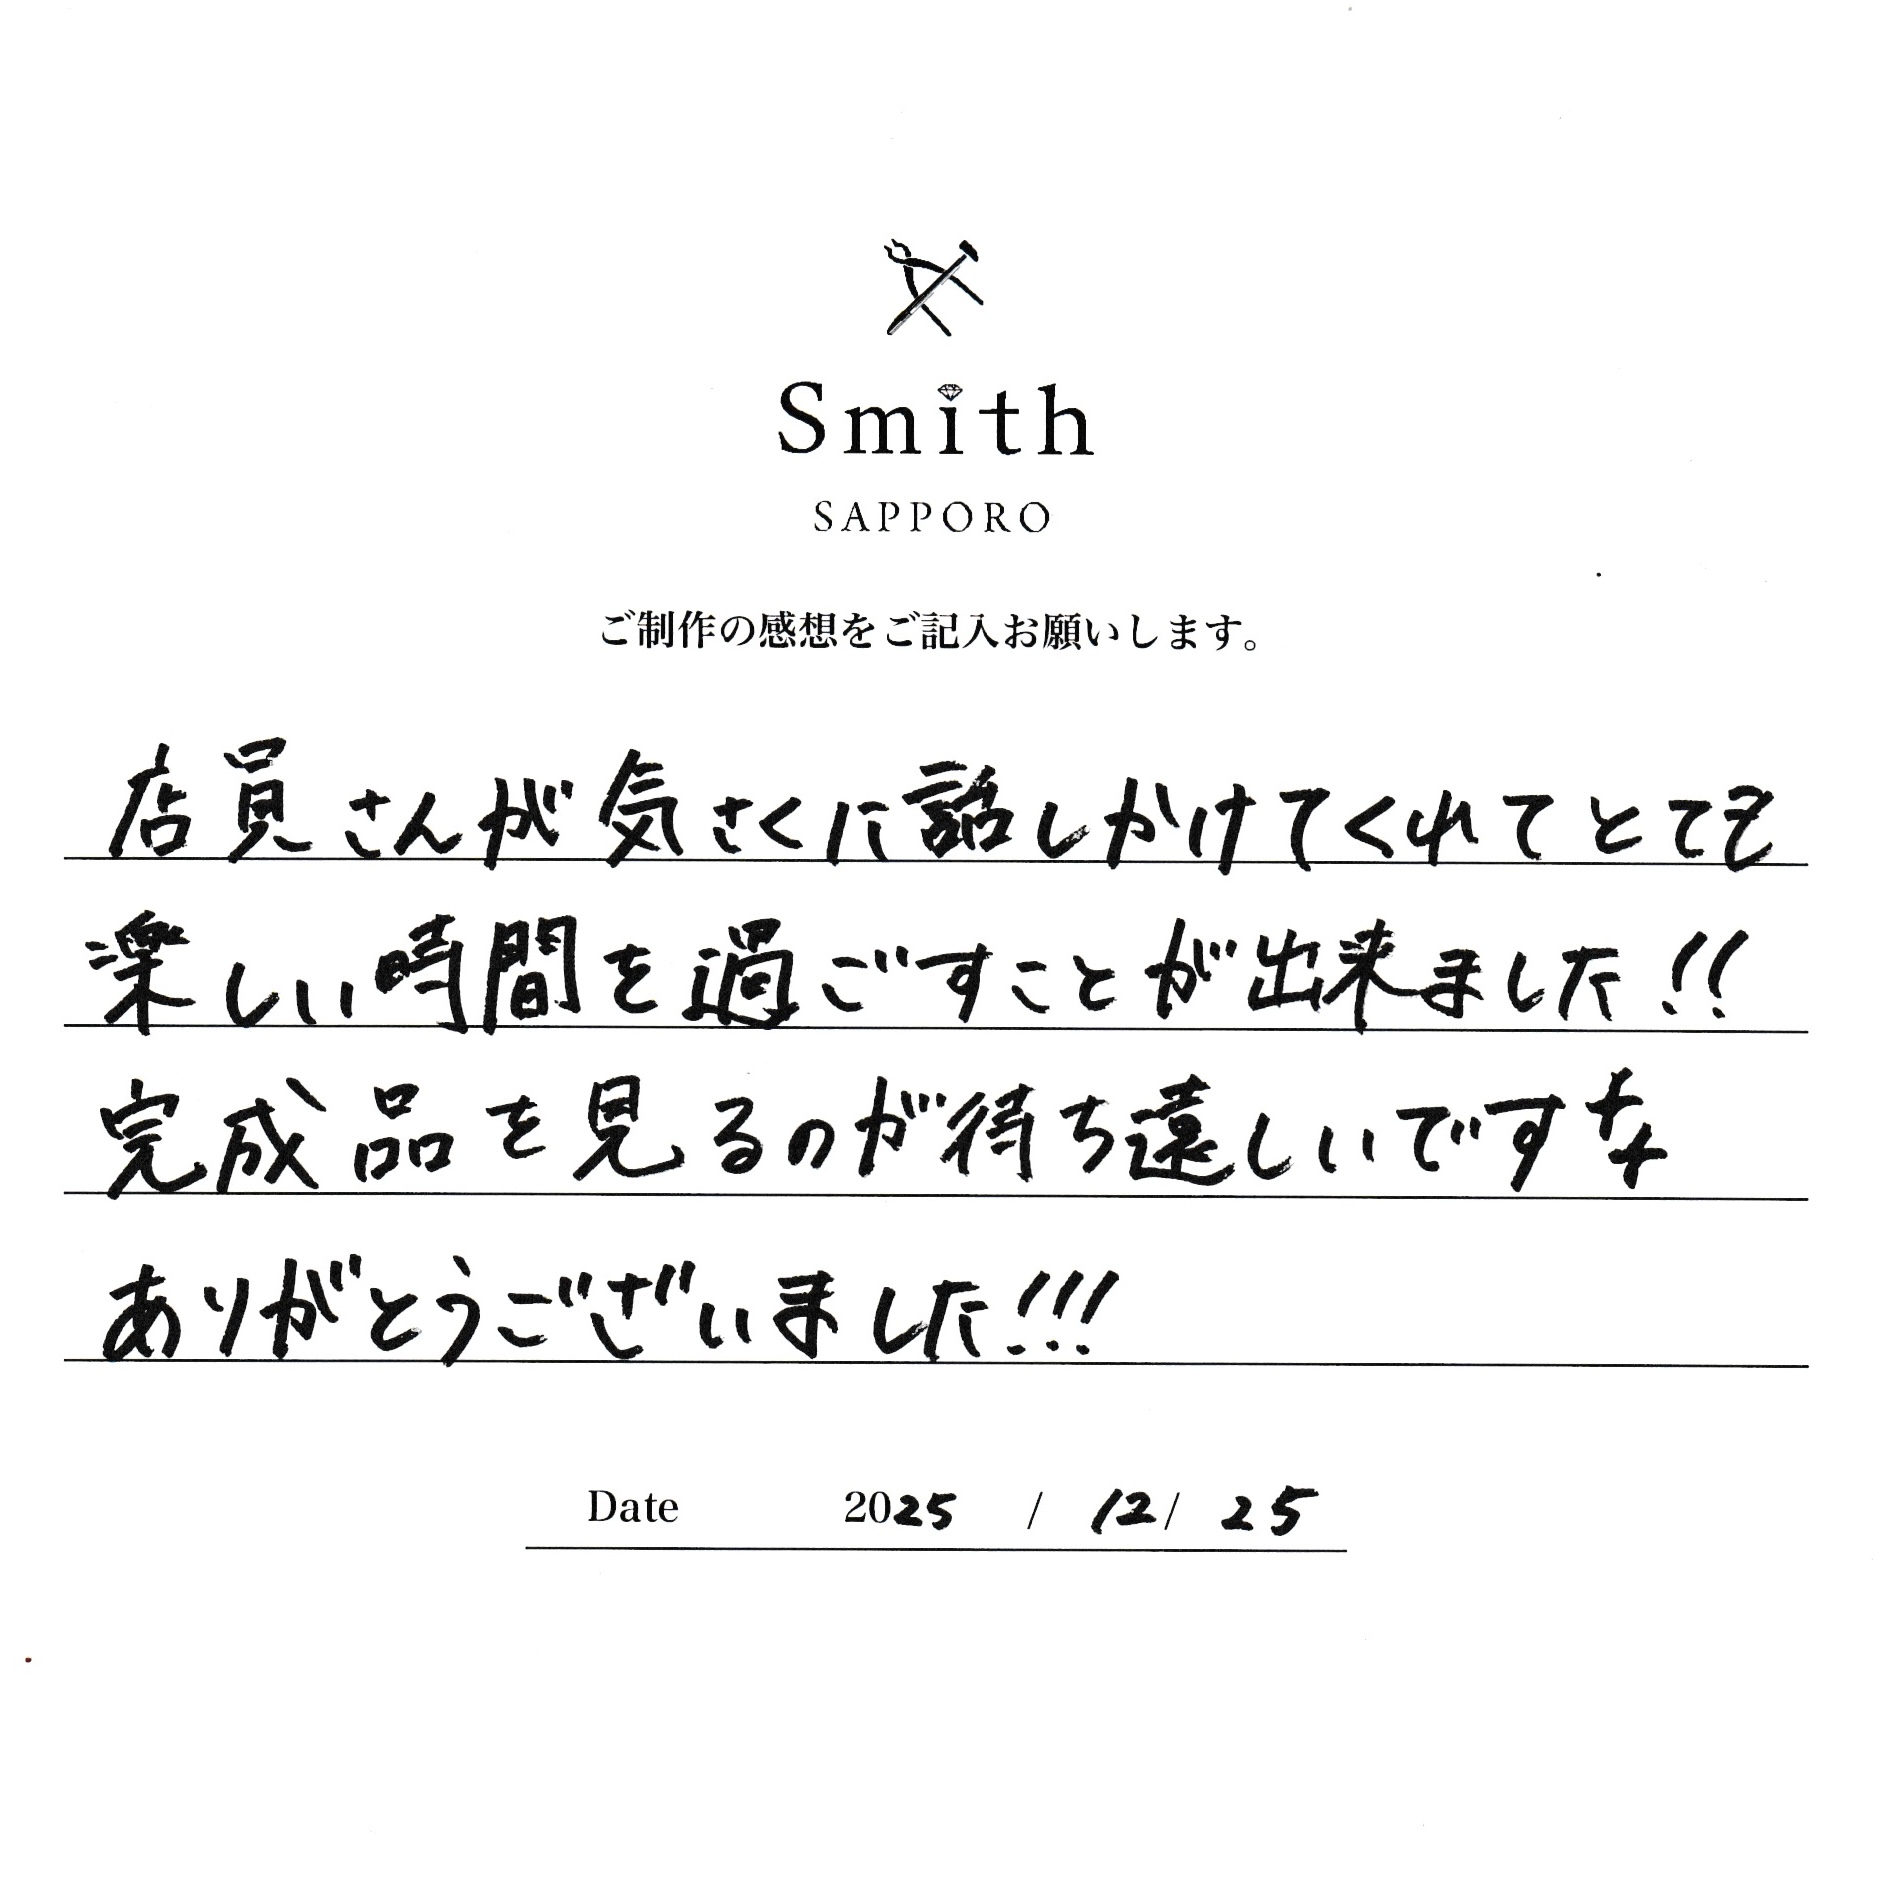 Smith
SAPPORO
ご制作の感想をご記入お願いします。
店員さんが気さくに話しかけてくれてとても
楽しい時間を過ごすことが出来ました!!
完成品を見るのが待ち遠しいですな
ありがとうございました!!!
Date 2025 / 12 / 25